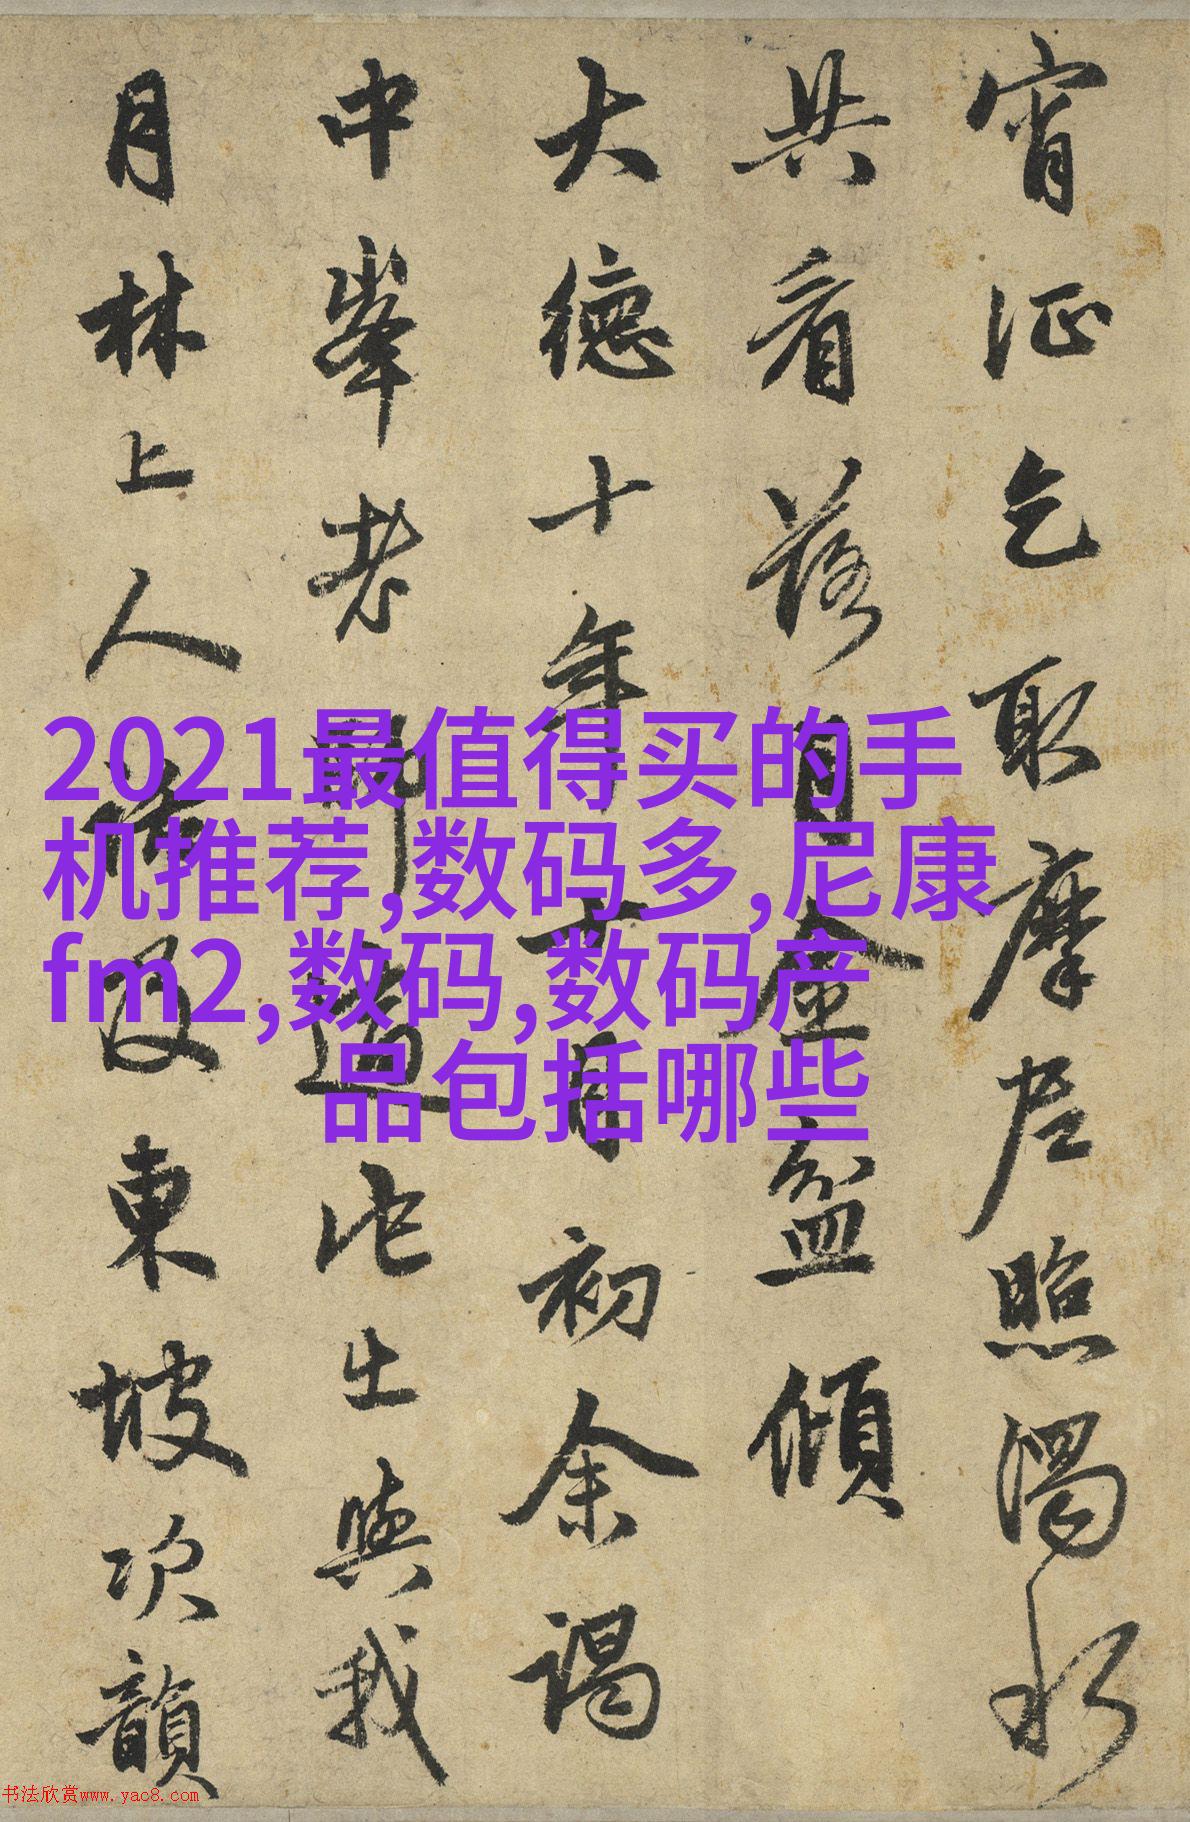 宵征乞取摩尼照濁水
共看落月金盆傾
大德十年十月初余謁
中峯老師適他出與我
月林上人及東坡次韻
2021最值得买的手
机推荐,数码多,尼康
fm2,数码,数码产
品包括哪些
书法欣赏www.yac8.com